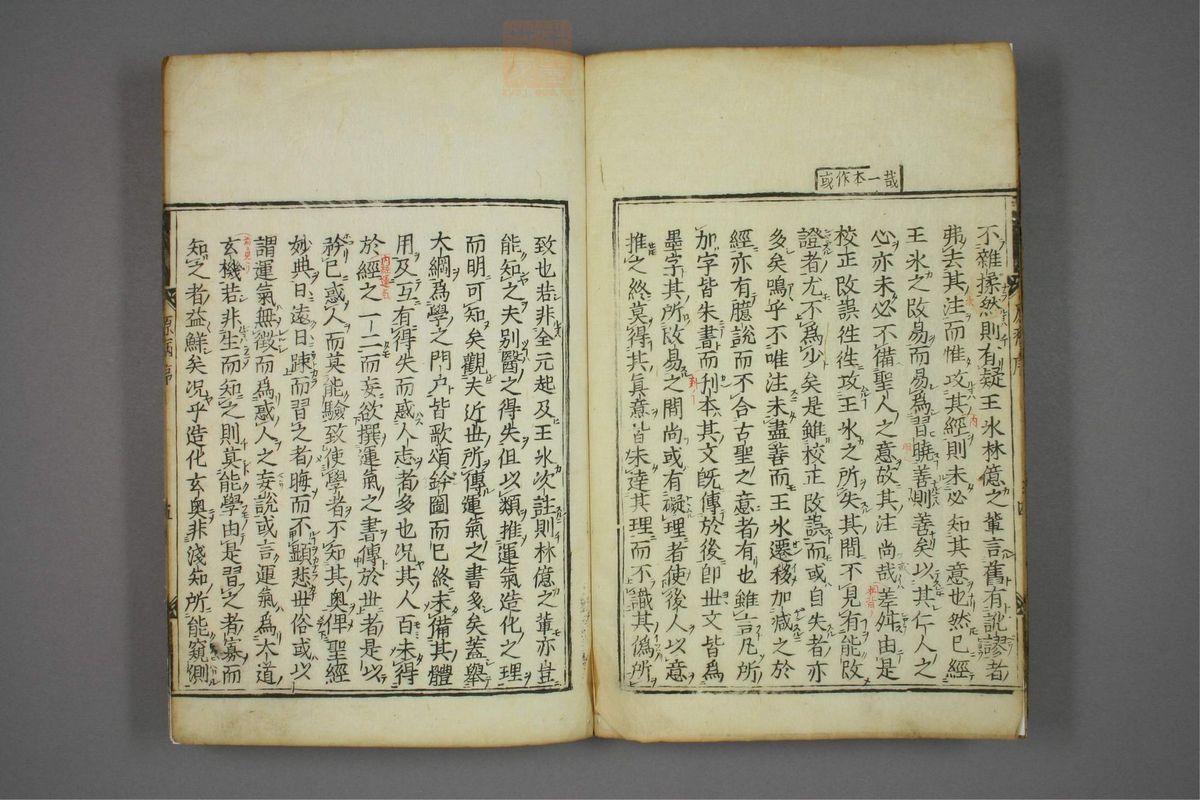 哉一本作或
不雜揉然則有疑王氷林億之輩言舊有訛謬者
弗去其注而惟攻其經則未必知其意也然已經
王氷之改易而易為習曉善則善矣以其仁人之
心亦未必不備聖人之意故其注尚哉差舛由是
校正改誤徃徃攻王氷之所失其間不見有能改
證者尤不為少矣是雖校正改誤而或自失者亦
多矣嗚乎不唯注未盡善而王氷遷移加減之於
經亦有臆說而不合古聖之意者有也雖言凡所
加字皆朱書而刋本其文既傳於後卽世文皆為
墨字其所改易之間尚或有礙理者使後人以意
推之終莫得其真意皆未達其理而不識其偽所
致也若非全元起及王氷次註則林億之輩亦豈
能知之夫別醫之得失但以類推運氣造化之理
而明可知矣觀夫近世所傳運氣之書多矣蓋舉
大綱為學之門户皆歌頌鈐圖而已終未備其體
用及互有得失而惑人志者多也况其人百未得
於經之一二而妄欲撰運氣之書傳於世者是以
矜已惑人而莫能驗致使學者不知其奥俾聖經
妙典日遠日踈而習之者晦而不顯悲世俗或以
謂運氣無徵而為惑人之妄說或言運氣為大道
玄機若非生而知之則莫能學由是習之者寡而
知之者益鮮矣况乎造化玄奥非淺知所能窺測
原病序